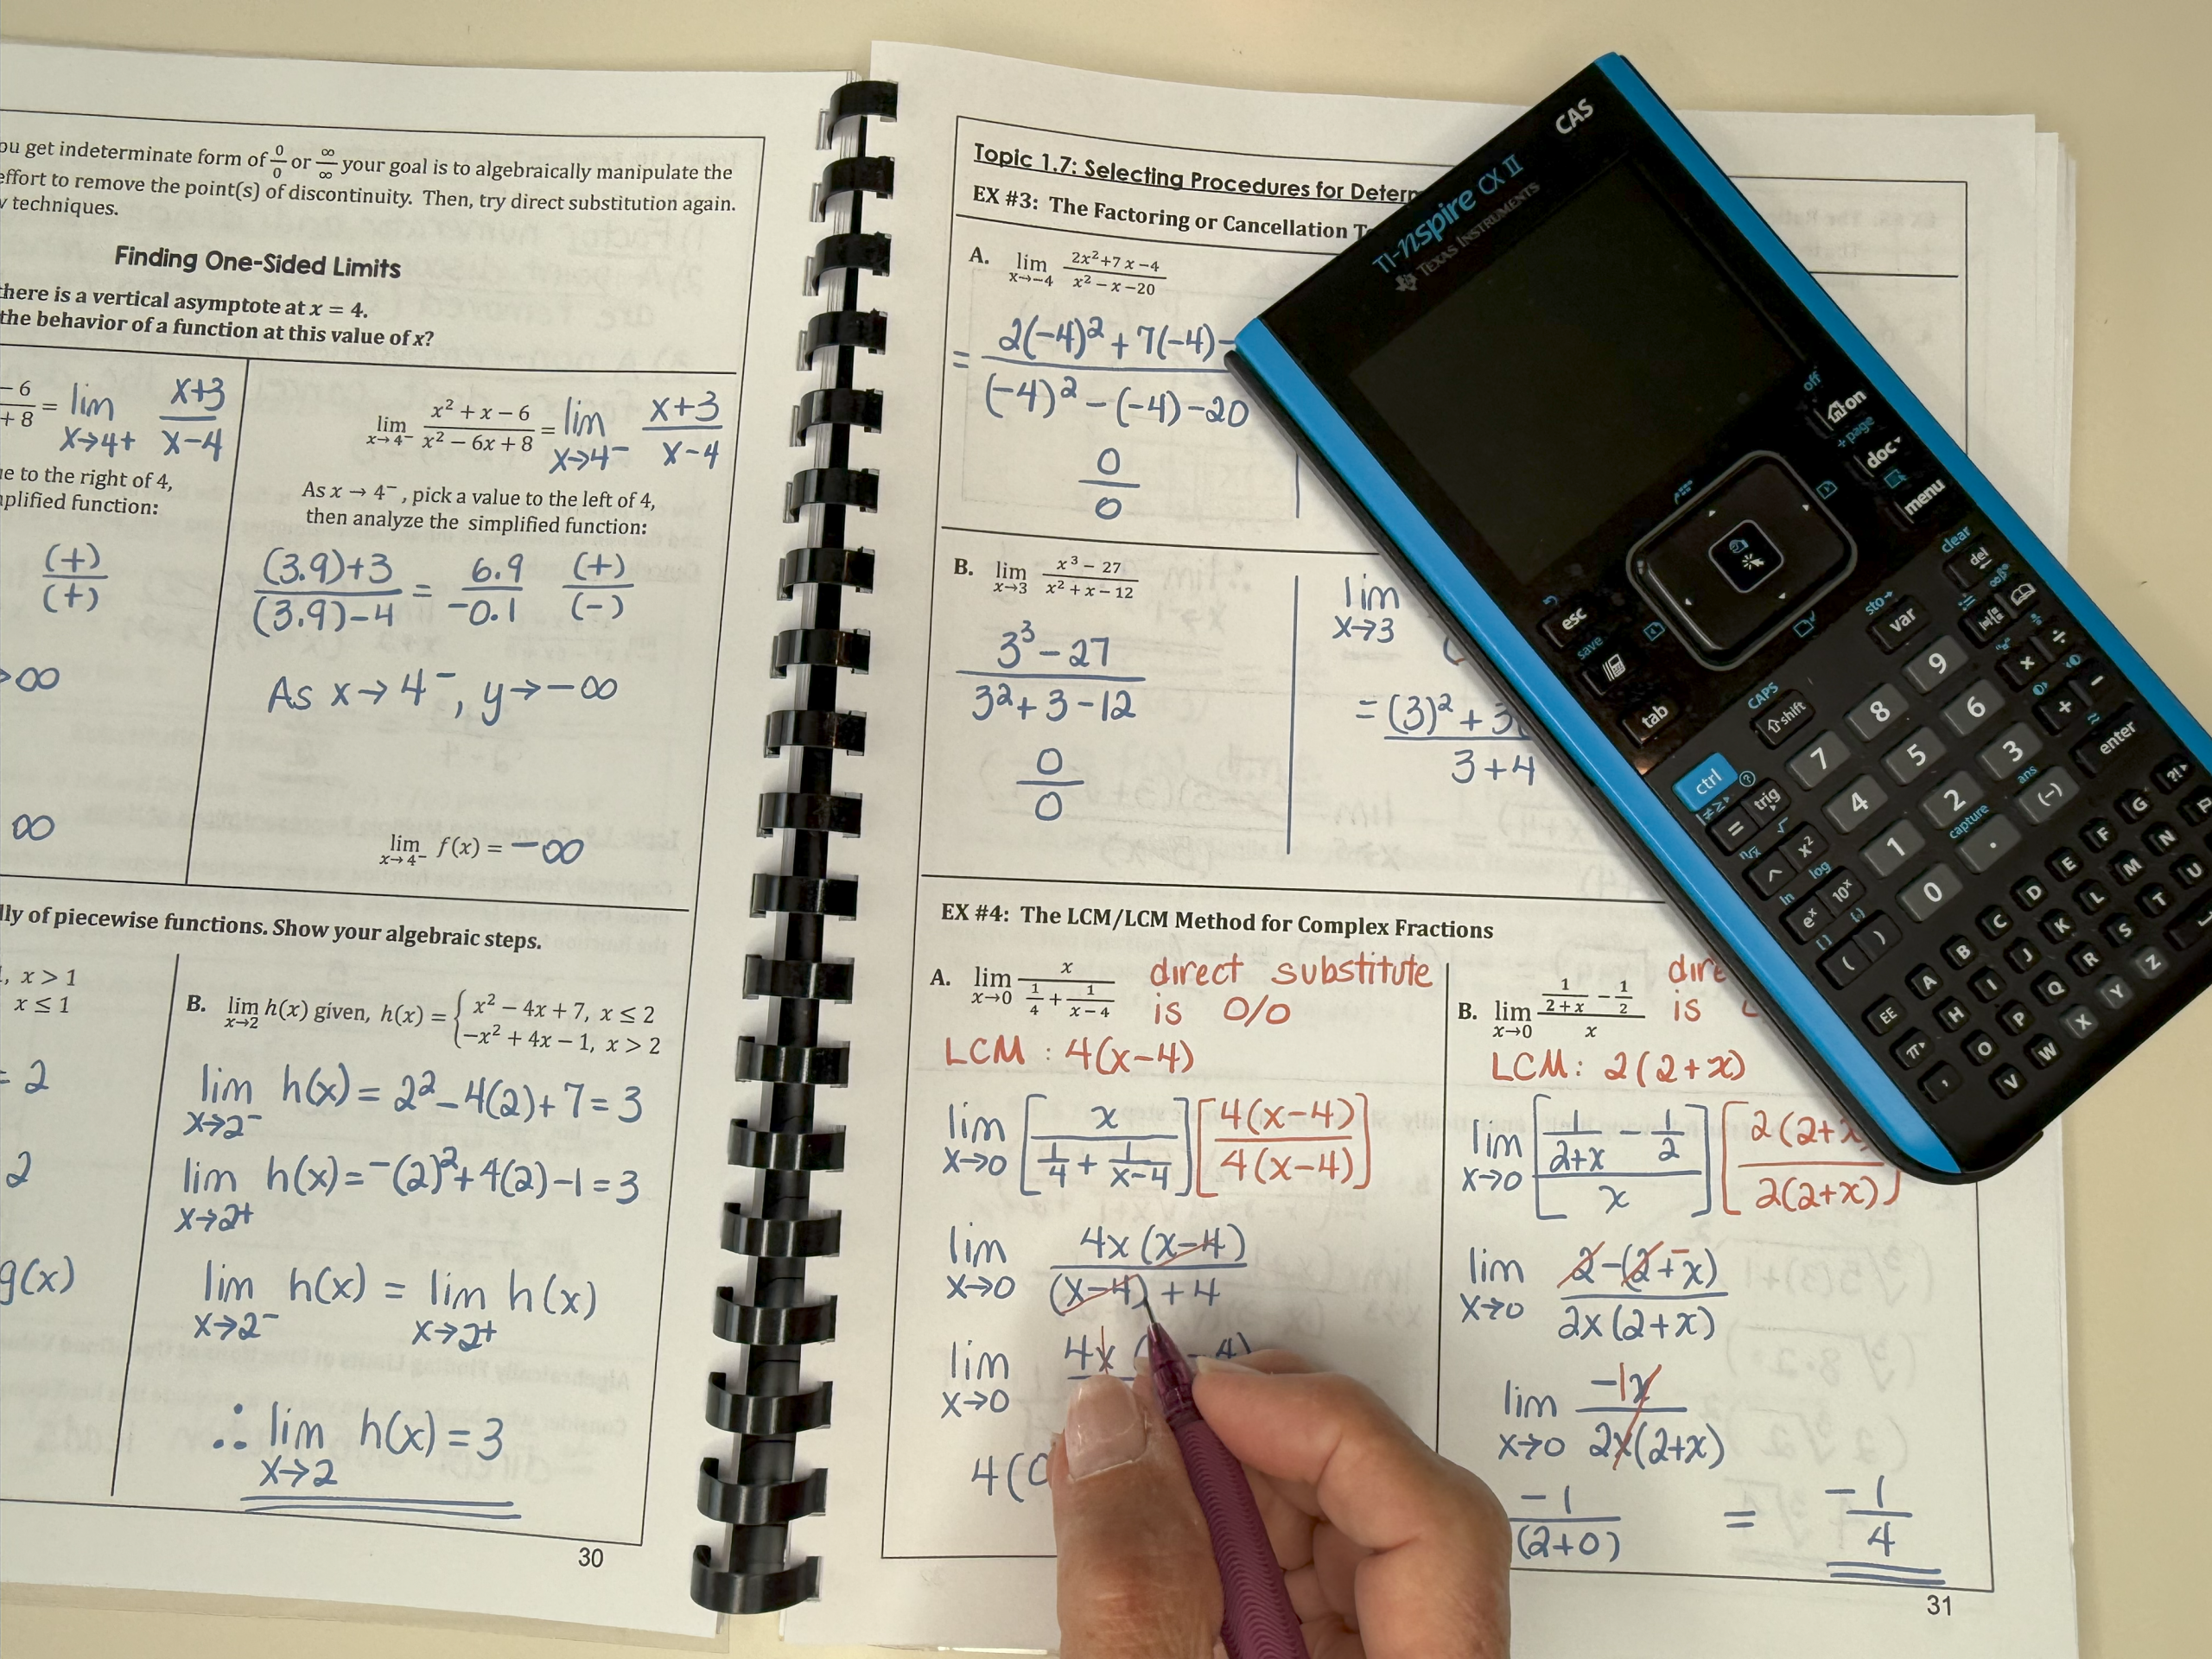 ou get indeterminate form of 0/0 or ∞/∞ your goal is to algebraically manipulate the
effort to remove the point(s) of discontinuity. Then, try direct substitution again.
techniques.
Finding One-Sided Limits
there is a vertical asymptote at x = 4.
the behavior of a function at this value of x?
- 6 / + 8 = lim x→4+ x+3 / x-4
e to the right of 4,
plified function:
(+) / (+)
∞
∞
lim x→4⁻ x² + x − 6 / x² − 6x + 8 = lim x→4⁻ x+3 / x-4
As x → 4⁻, pick a value to the left of 4,
then analyze the simplified function:
(3.9)+3 / (3.9)-4 = 6.9 / -0.1 (+) / (-)
As x→4⁻, y→-∞
lim x→4⁻ f(x) = -∞
lly of piecewise functions. Show your algebraic steps.
, x > 1
x ≤ 1
= 2
2
g(x)
B. lim x→2 h(x) given, h(x) = { x² − 4x + 7, x ≤ 2
−x² + 4x − 1, x > 2
lim x→2⁻ h(x) = 2² - 4(2) + 7 = 3
lim x→2+ h(x) = -(2)² + 4(2) - 1 = 3
lim x→2⁻ h(x) = lim x→2+ h(x)
∴ lim x→2 h(x) = 3
30
Topic 1.7: Selecting Procedures for Determ
EX #3: The Factoring or Cancellation T
A. lim x→−4 2x²+7x−4 / x²−x−20
= 2(-4)² + 7(-4)- / (-4)² - (-4) - 20
0 / 0
B. lim x→3 x³ − 27 / x² + x − 12
3³ - 27 / 3² + 3 - 12
0 / 0
lim x→3 (
= (3)² + 3 / 3+4
EX #4: The LCM/LCM Method for Complex Fractions
A. lim x→0 x / 1/4 + 1/x−4
direct substitute
is 0/0
LCM : 4(x-4)
lim x→0 [x / 1/4 + 1/x-4] [4(x-4) / 4(x-4)]
lim x→0 4x(x-4) / (x-4) + 4
lim x→0 4x ( - 4)
4(0
B. lim x→0 1/2+x − 1/2 / x
dire
is
LCM : 2(2+x)
lim x→0 [1/2+x - 1/2 / x] [2(2+x / 2(2+x)]
lim x→0 2-(2+x) / 2x(2+x)
lim x→0 -1x / 2x(2+x)
-1 / (2+0) = -1 / 4
31
CAS
TI-nspire CX II
TEXAS INSTRUMENTS
off
on
+page
doc
menu
esc
save
tab
sto→
var
clear
del
CAPS
shift
ctrl
trig
7 8 9
4 5 6
1 2 3
0 . (−)
÷
×
−
+
ans
capture
enter
=
^ x²
ln log
eˣ 10ˣ
( )
EE A B C D E F G
H I J K L M N
O P Q R S T U
V W X Y Z
π
,
?!